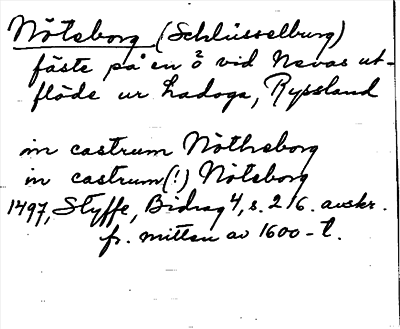 Nöteborg (Schlüsselburg)
fäste på en ö vid Nevas ut-
flöde ur Ladoga, Ryssland
in castrum Nöthsborg
in castrum(!) Nötsborg
1497, Styffe, Bidrag 4, s. 216. avskr.
fr. mitten av 1600-t.